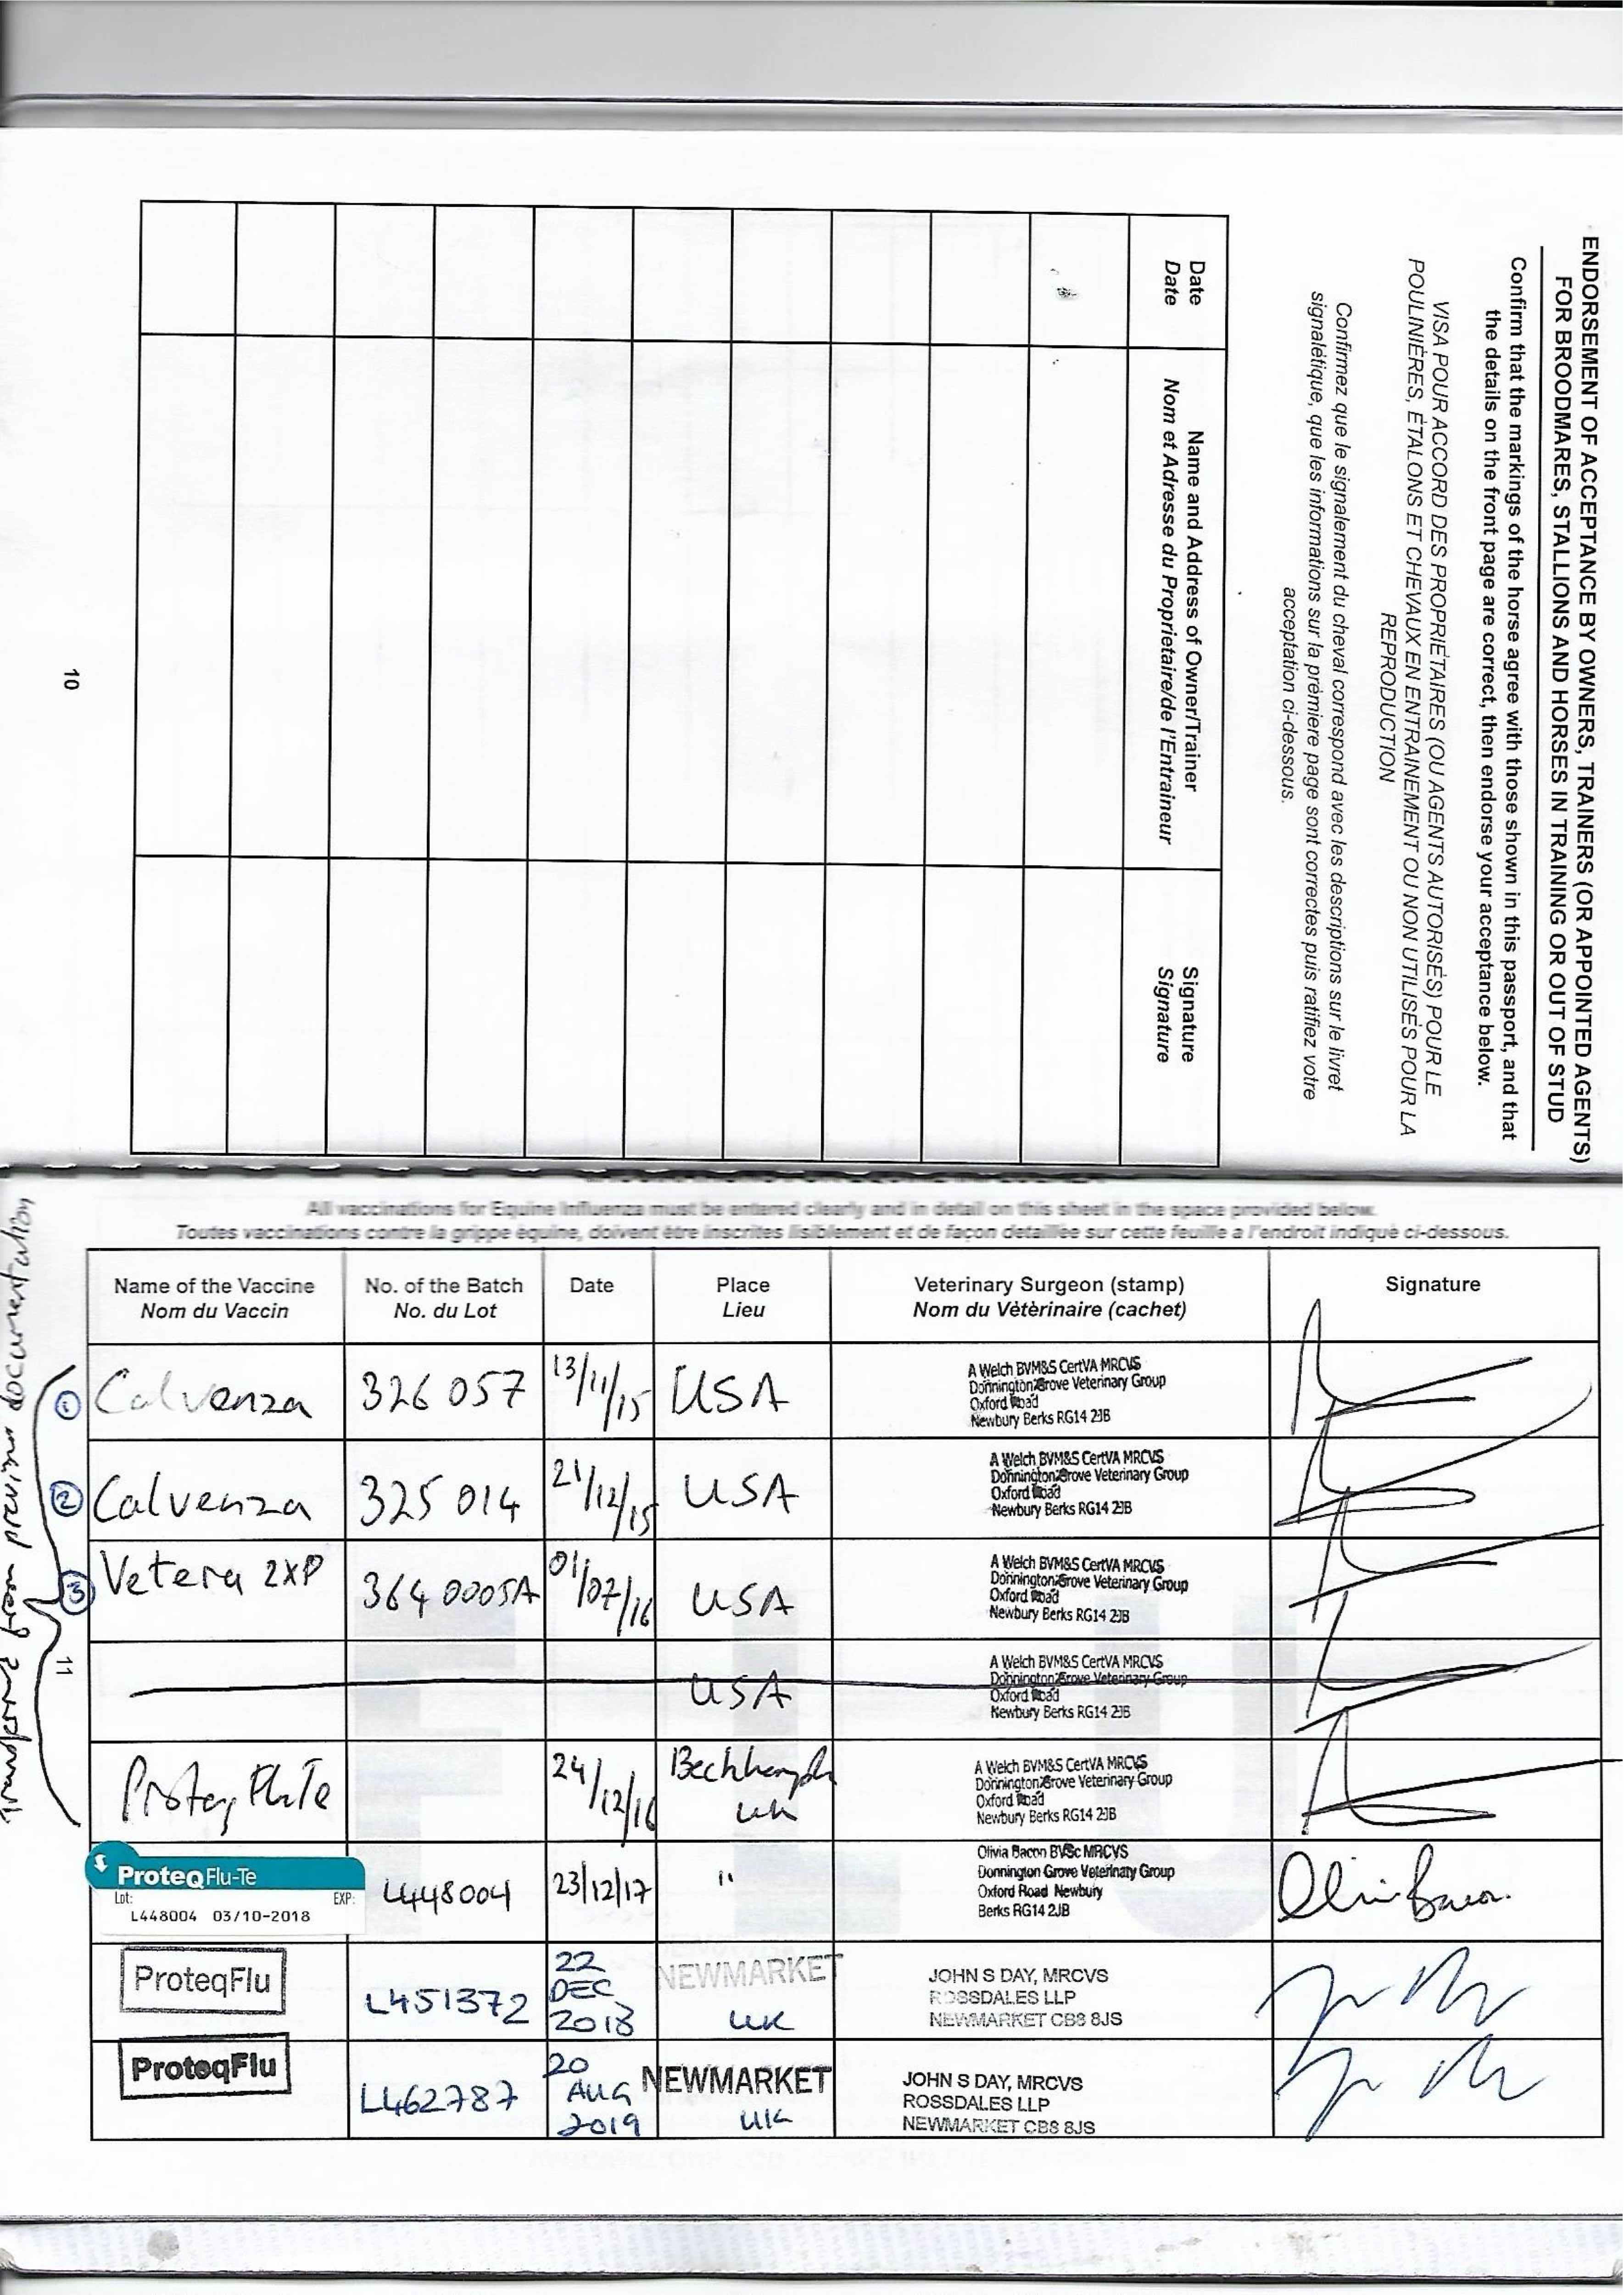 ENDORSEMENT OF ACCEPTANCE BY OWNERS, TRAINERS (OR APPOINTED AGENTS)
FOR BROODMARES, STALLIONS AND HORSES IN TRAINING OR OUT OF STUD
Confirm that the markings of the horse agree with those shown in this passport, and that
the details on the front page are correct, then endorse your acceptance below.
VISA POUR ACCORD DES PROPRIÈTAIRES (OU AGENTS AUTORISÈS) POUR LE
POULINIÈRES, ÈTALONS ET CHEVAUX EN ENTRAINEMENT OU NON UTILISÈS POUR LA
REPRODUCTION
Confirmez que le signalement du cheval correspond avec les descriptions sur le livret
signalétique, que les informations sur la prèmiere page sont correctes puis ratifiez votre
acceptation ci-dessous.
Date
Date
Name and Address of Owner/Trainer
Nom et Adresse du Proprietaire/de l'Entraineur
Signature
Signature
10
All vaccinations for Equine Influenza must be entered clearly and in detail on this sheet in the space provided below.
Toutes vaccinations contre la grippe èquine, doivent être inscrites lisiblement et de façon detaillèe sur cette feuille a l'endroit indiquè ci-dessous.
Name of the Vaccine No. of the Batch Date Place Veterinary Surgeon (stamp) Signature
Nom du Vaccin No. du Lot Lieu Nom du Vètèrinaire (cachet)
1 Calvenza 326 057 13/11/15 USA
A Welch BVM&S CertVA MRCVS
Donnington Grove Veterinary Group
Oxford Road
Newbury Berks RG14 2JB
2 Calvenza 325 014 21/12/15 USA
A Welch BVM&S CertVA MRCVS
Donnington Grove Veterinary Group
Oxford Road
Newbury Berks RG14 2JB
3 Vetera 2XP 364 0005A 01/07/16 USA
A Welch BVM&S CertVA MRCVS
Donnington Grove Veterinary Group
Oxford Road
Newbury Berks RG14 2JB
USA
A Welch BVM&S CertVA MRCVS
Donnington Grove Veterinary Group
Oxford Road
Newbury Berks RG14 2JB
Proteq FluTe 24/12/16 UK
A Welch BVM&S CertVA MRCVS
Donnington Grove Veterinary Group
Oxford Road
Newbury Berks RG14 2JB
ProteqFlu-Te
Lot: EXP:
L448004 03/10-2018
L448004 23/12/17 "
Olivia Bacon BVSc MRCVS
Donnington Grove Veterinary Group
Oxford Road Newbury
Berks RG14 2JB
Olivia Bacon
ProteqFlu L451372 22 DEC 2018 NEWMARKET UK
JOHN S DAY, MRCVS
ROSSDALES LLP
NEWMARKET CB8 8JS
ProteqFlu L462787 20 AUG 2019 NEWMARKET UK
JOHN S DAY, MRCVS
ROSSDALES LLP
NEWMARKET CB8 8JS
11
transferred from previous documentation
FLU